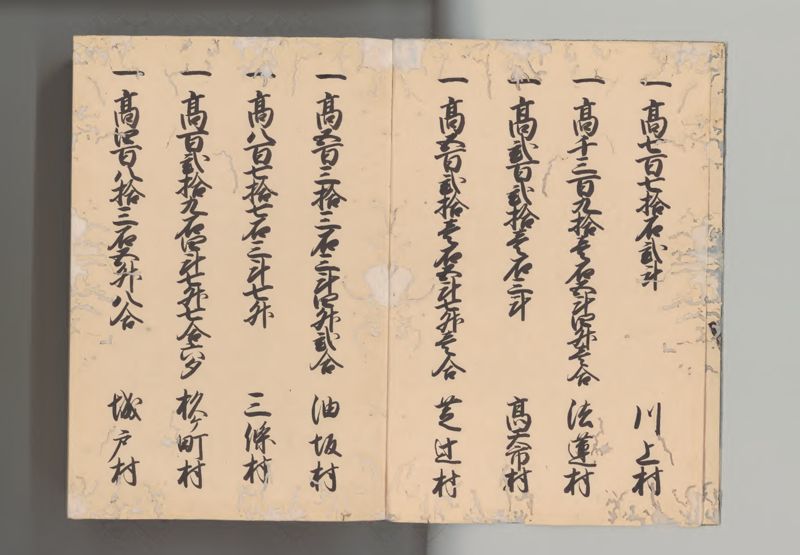 一 高七百七拾石弐斗 川上村
一 高千三百九拾壱石五斗四升壱合 法蓮村
一 高弐百弐拾壱石三斗 高天市村
一 高五百弐拾壱石五斗七升壱合 芝辻村
一 高五百三拾三石三斗四升弐合 油坂村
一 高八百七拾七石三斗七升 三條村
一 高百弐拾九石四斗七升七合六夕 杉ヶ町村
一 高四百八拾三石五升八合 城戸村